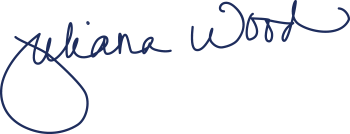 Juliana Wood